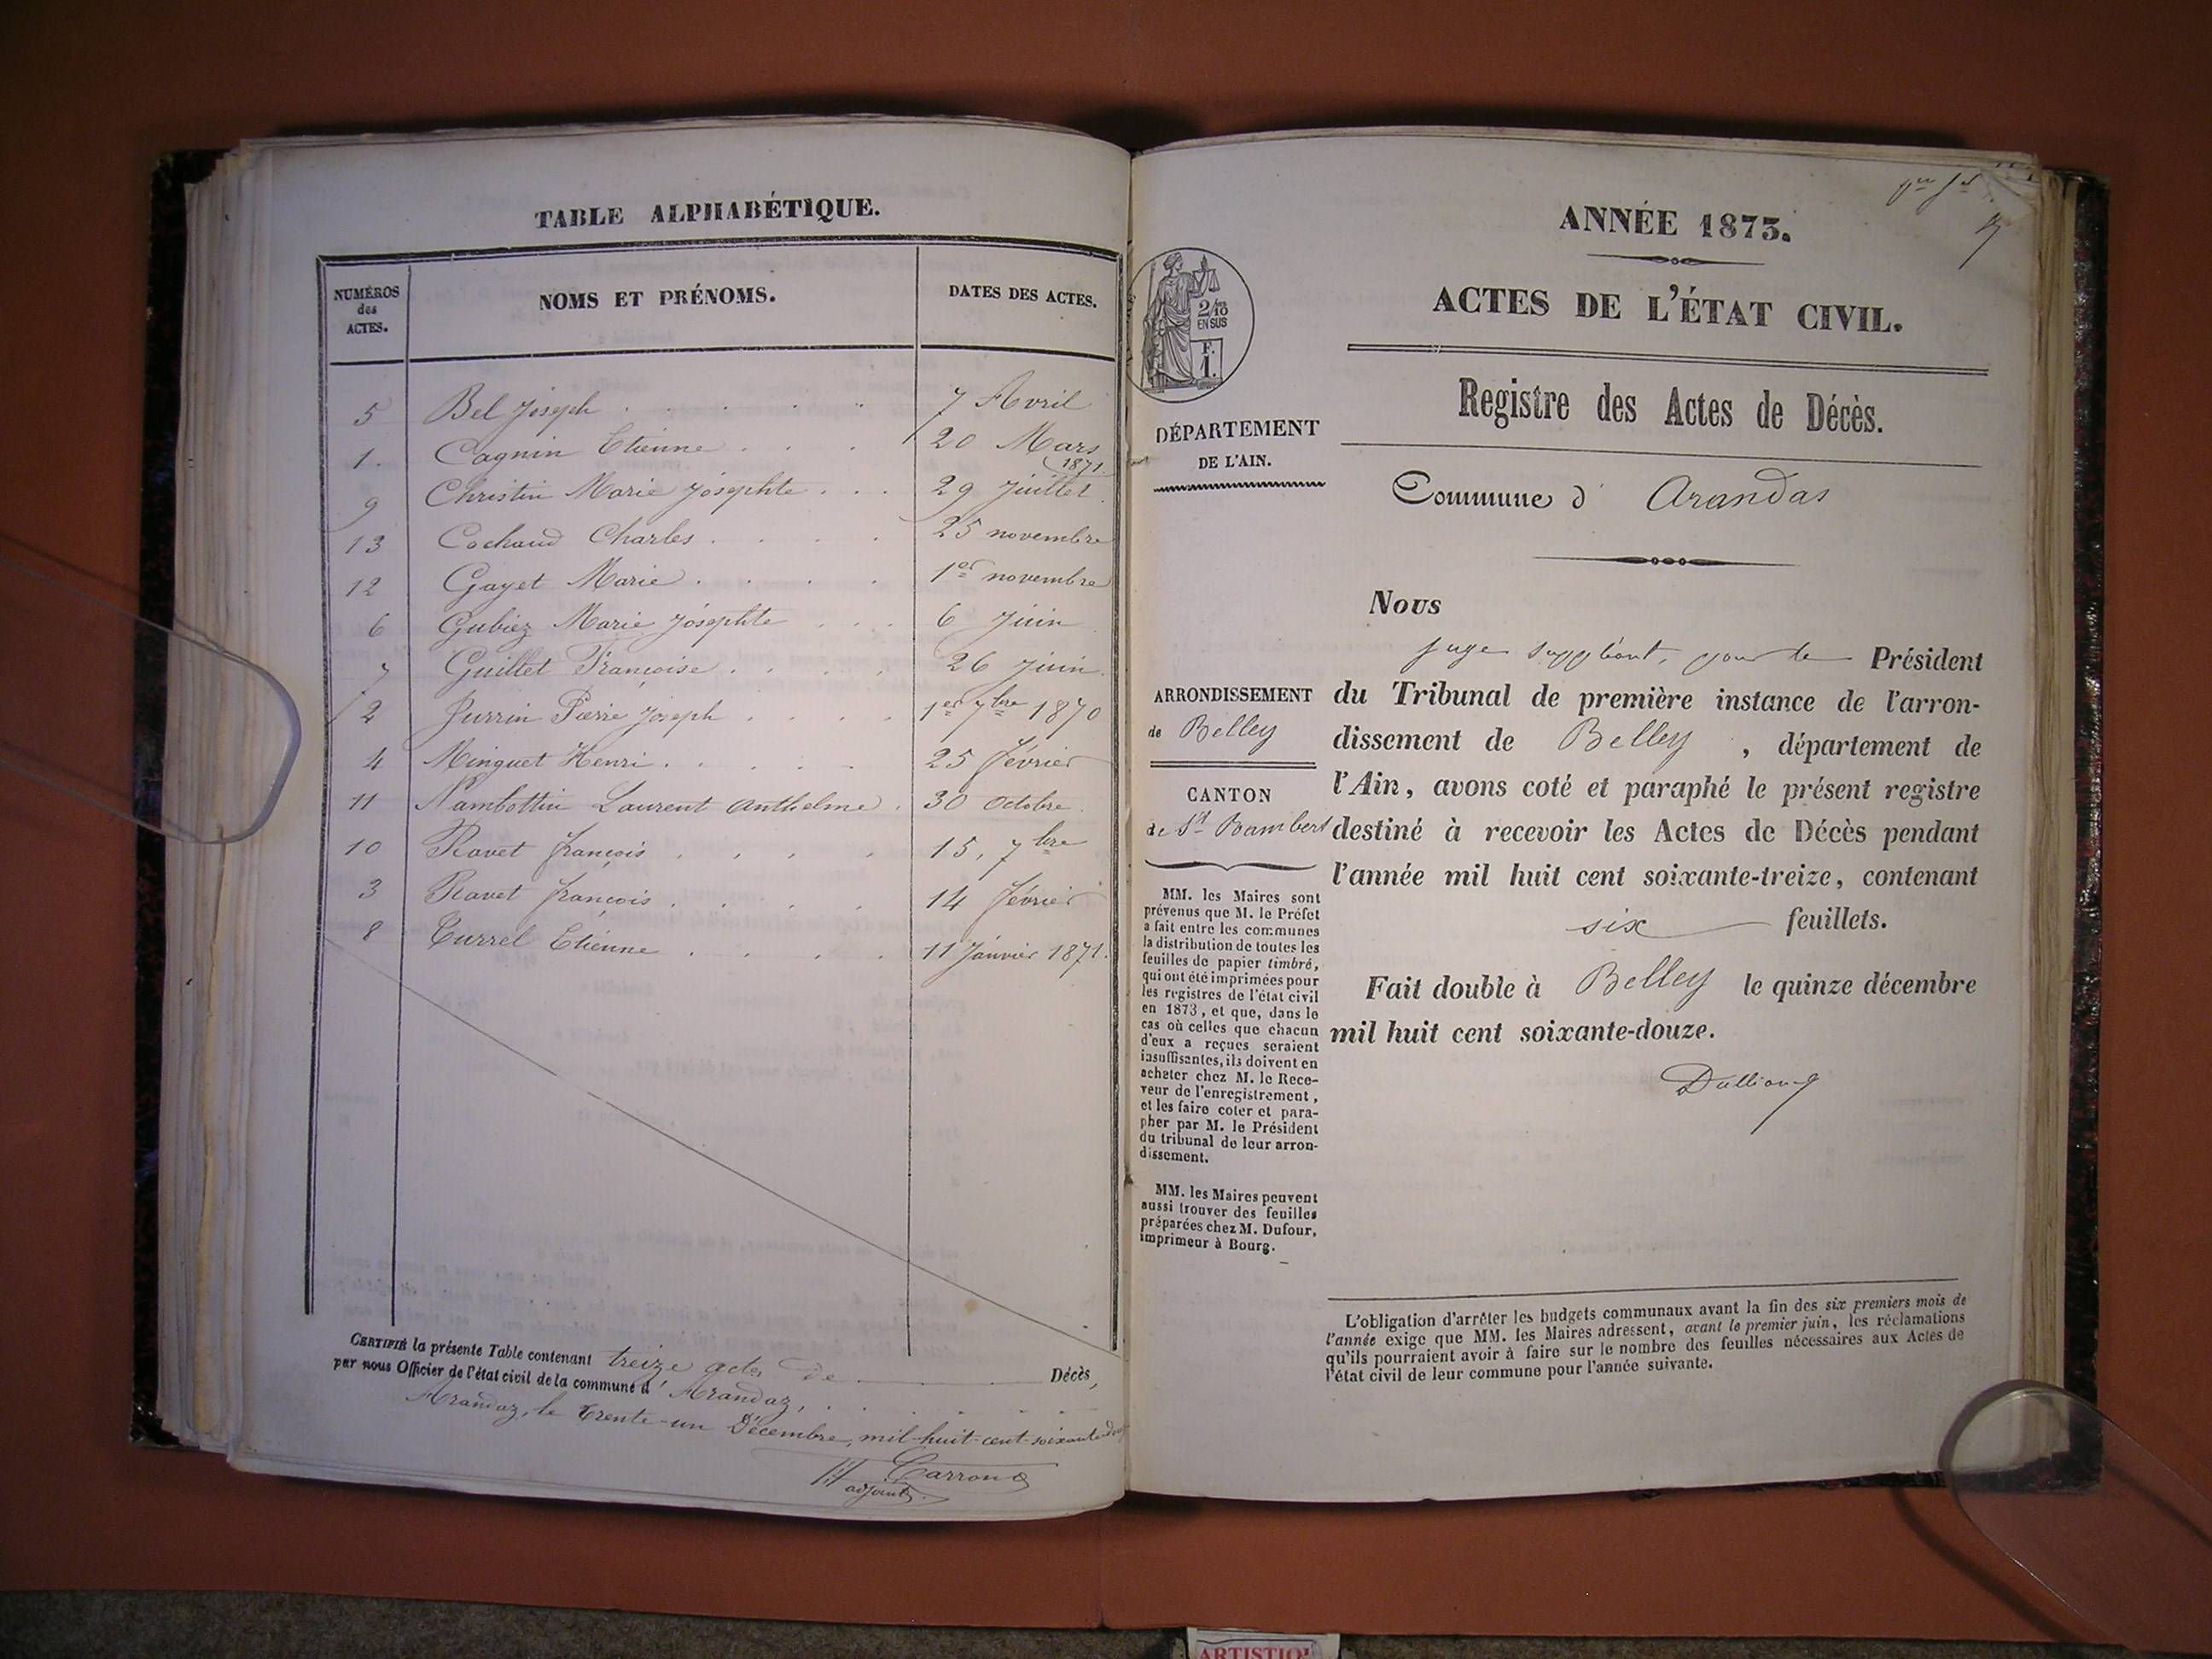 TABLE ALPHABÉTIQUE.
NUMÉROS des ACTES. NOMS ET PRÉNOMS. DATES DES ACTES.
5 Bel Joseph 7 Avril
1. Cagnin Etienne 20 Mars 1871
9 Christin Marie Josephte 29 Juillet
13 Cochaud Charles 25 novembre
12 Gayet Marie 1er novembre
6 Gubiez Marie Josephte 6 Juin
7 Guillet Françoise 26 Juin
2 Jurrin Pierre Joseph 1er 7bre 1870
4 Minguet Henri 25 février
11 Nambottin Laurent Anthelme 30 Octobre
10 Ravet françois 15, 7bre
3 Ravet françois 14 février
8 Turrel Etienne 11 Janvier 1871.
CERTIFIÉ la présente Table contenant treize actes de Décès,
par nous Officier de l'état civil de la commune d' Arandaz,
Arandaz, le trente-un Décembre, mil-huit-cent-soixante
Carron
adjoint
ANNÉE 1873.
ACTES DE L'ÉTAT CIVIL.
2/10
EN SUS
F.
1.
Registre des Actes de Décès.
DÉPARTEMENT
DE L'AIN.
Commune d' Arandas
Nous
juge suppléant, pour le Président
du Tribunal de première instance de l'arron-
dissement de Belley, département de
l'Ain, avons coté et paraphé le présent registre
destiné à recevoir les Actes de Décès pendant
l'année mil huit cent soixante-treize, contenant
six feuillets.
Fait double à Belley le quinze décembre
mil huit cent soixante-douze.
ARRONDISSEMENT
de Belley
CANTON
de St Rambert
MM. les Maires sont
prévenus que M. le Préfet
a fait entre les communes
la distribution de toutes les
feuilles de papier timbré,
qui ont été imprimées pour
les registres de l'état civil
en 1873, et que, dans le
cas où celles que chacun
d'eux a reçues seraient
insuffisantes, ils doivent en
acheter chez M. le Rece-
veur de l'enregistrement,
et les faire coter et para-
pher par M. le Président
du tribunal de leur arron-
dissement.
MM. les Maires peuvent
aussi trouver des feuilles
préparées chez M. Dufour,
imprimeur à Bourg.
L'obligation d'arrêter les budgets communaux avant la fin des six premiers mois de
l'année exige que MM. les Maires adressent, avant le premier juin, les réclamations
qu'ils pourraient avoir à faire sur le nombre des feuilles nécessaires aux Actes de
l'état civil de leur commune pour l'année suivante.